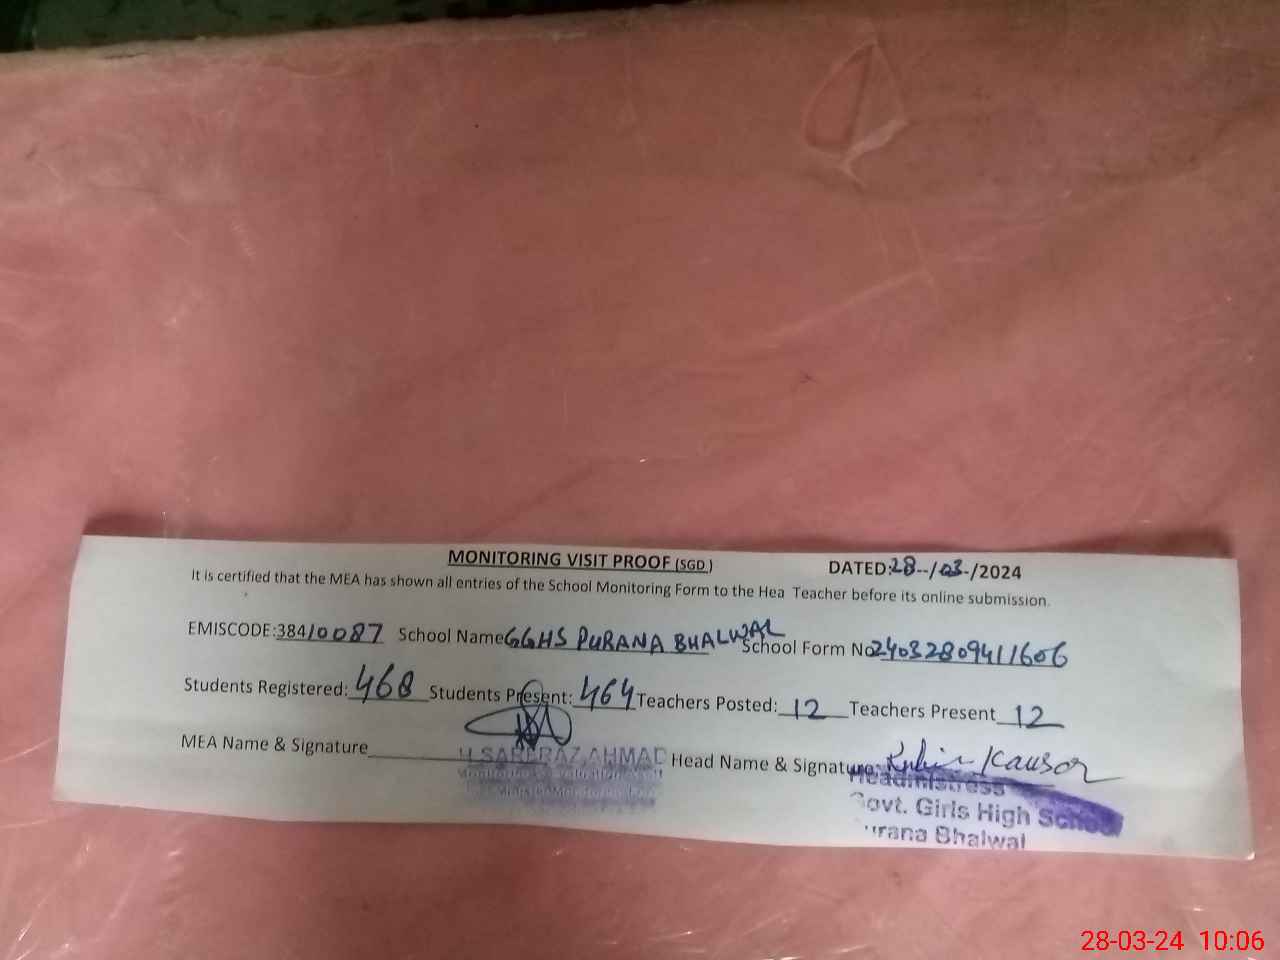 MONITORING VISIT PROOF (SGD.) DATED:28--/03-/2024
It is certified that the MEA has shown all entries of the School Monitoring Form to the Hea Teacher before its online submission.
EMISCODE:38410087 School Name GGHS PURANA BHALWAL School Form No 2403280941 1606
Students Registered: 468 Students Present: 464 Teachers Posted: 12 Teachers Present 12
MEA Name & Signature SARFRAZ AHMAD Head Name & Signature: Kausor
Headmistress
Govt. Girls High School
urana Bhalwal
28-03-24 10:06